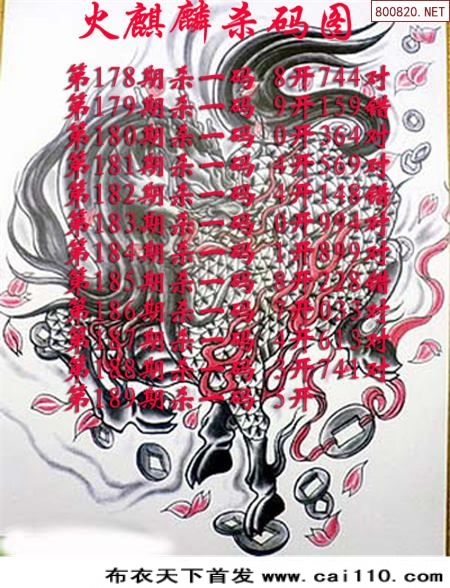 800820.NET
火麒麟杀码图
第178期杀一码 8开744对
第179期杀一码 9开159错
第180期杀一码 0开364对
第181期杀一码 4开569对
第182期杀一码 4开148错
第183期杀一码 0开994对
第184期杀一码 1开899对
第185期杀一码 8开228错
第186期杀一码 开033对
第187期杀一码 4开615对
第188期杀一码 开741对
第189期杀一码 5开
布衣天下首发 www.cai110.com